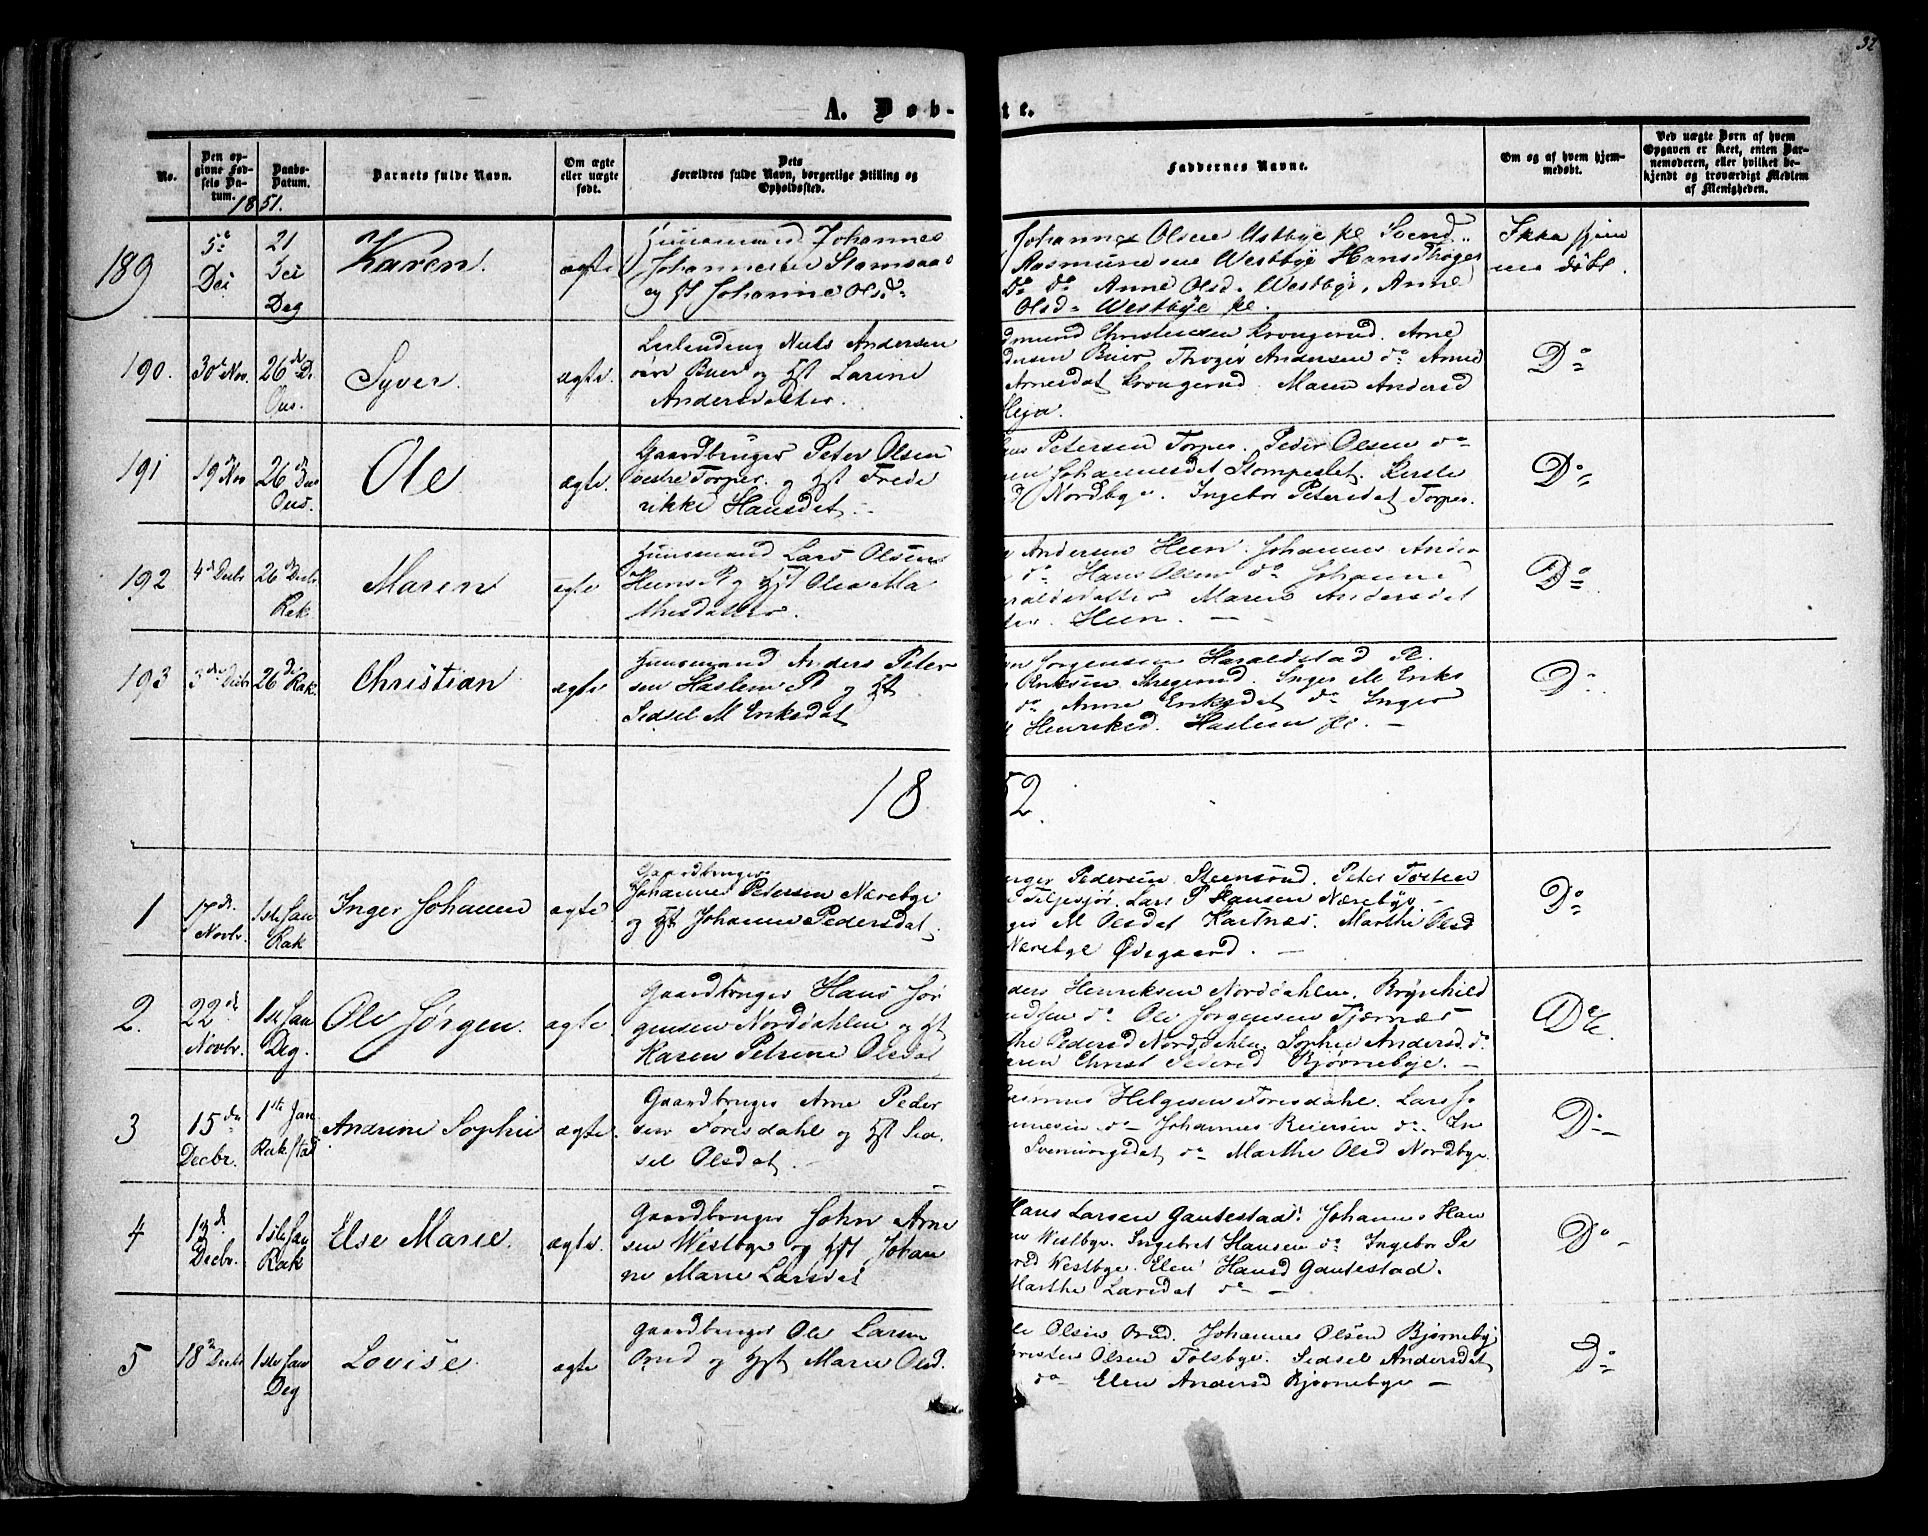 32
A. Døb-te.
No.
Den op-
givne Fød-
sels Da-
tum.
Daabs-
Datum.
1851.
Barnets fulde Navn.
Om ægte
eller uægte
født.
Dets
Forældres fulde Navn, borgerlige Stilling og
Opholdssted.
Faddernes Navne.
Om og af hvem hjem-
medøbt.
Ved uægte Børn af hvem
Opgaven er skeet, enten Bar-
nemoderen, eller hvilket be-
kjendt og troværdigt Medlem
af Menigheden.
189
5 Dei
21 Dei Deg
Karen
ægte
Huusmand Johannes
Johannesen
og H Johanne Olsd
Johannes Olsen Westbye
Rasmus Westbye Hans
Do do Anne Olsd. Westbye, Anne
Olsd Westbye pl.
Ikke hjem
me døbt.
190.
30 Nov.
26 d
Syver.
ægte.
Leilending Niels Andersen
øvre Buer og Hst Larine
Andersdatter.
dmund Christensen Krongerud. Arne
Buer Andersen do Anne
Arnesdat Krongerud. Maren Andersd
Heja.
Do
191
19 Nov
26
Ole
ægte.
Gaardbruger Peter Olsen
vestre Torper. og Hst Frede
rikke Hansdat.
Petersen Torper. Peder Olsen do
Johannesdat
Nordbye. Ingebor Petersdat Torper.
Do
192
4 Decbr
26 Decbr
Rak
Maren
ægte
Huusmand Lars Olsen
og Hst Olea Ma
thisdatter.
Andersen Heen. Johannes Ander
do Hans Olsen do Johanne
raldsdatter Maren Andersdat
Heen.
Do
193
3 Decbr
26 Rak
Christian
ægte
Huusmand Anders Peter
sen Haslem P og Hst
Sidsel M Eriksdat
Jorgensen Haraldstad Pl.
Eriksen Skegerud. Inger M Eriks
do Anne Eriksdat do Inger
Henriksd. Haslem pl.
Do
1852.
1
17 d. Novbr.
1ste Jan Rak
Inger Johanne
ægte
Gaardbruger
Johannes Petersen Nærebye
og Hst Johanne Pedersdat.
Pedersen Steensrud. Peter Torsten
Lars P Hansen Nærebye.
M Olsdat Kartnæs. Marthe Olsd
Nærebye Ødegaard.
Do
2.
22 d Novbr.
1ste Jan Deg.
Ole Jørgen.
ægte.
Gaardbruger Hans Jør
gensen Norddahlen og Hst
Karen Petrine Olsdat
ders Henriksen Norddahlen. Brynhild
do Ole Jørgensen Tjærnæs
the Pedersd Norddahlen. Sophie Andersd. do
aren Christ Pedersd Bjørnebye.
Do
3
15 de Decbr.
1ste Jan
Andrine Sophie
ægte.
Gaardbruger Arne Peder
sen Førisdahl og Hst Sid
sel Olsdat.
Helgesen Førisdahl. Lars Jo
nnesen do Johannes Reiersen do. En
Svenningsdat do Marthe Olsd Nordbye.
Do
4
13 d Decbr.
1ste Jan Rak
Else Marie.
ægte.
Gaardbruger John Arne
sen Westbye og Hst Johan
ne Marie Larsdat
Hans Larsen Gautestad. Johannes Han
n Westbye. Ingebret Hansen do Ingebor Pe
Westbye. Elen Hansd Gautestad.
Marthe Larsdat do
Do
5
18 Decbr
1ste Jan Deg
Lovise.
ægte
Gaardbruger Ole Larsen
Brud og Hst Marie Olsd.
le Olsen Brud. Johannes Olsen Bjørneby
risten Olsen Tolsbye. Sidsel Andersdat
do Elen Andersd Bjørnebye
Do